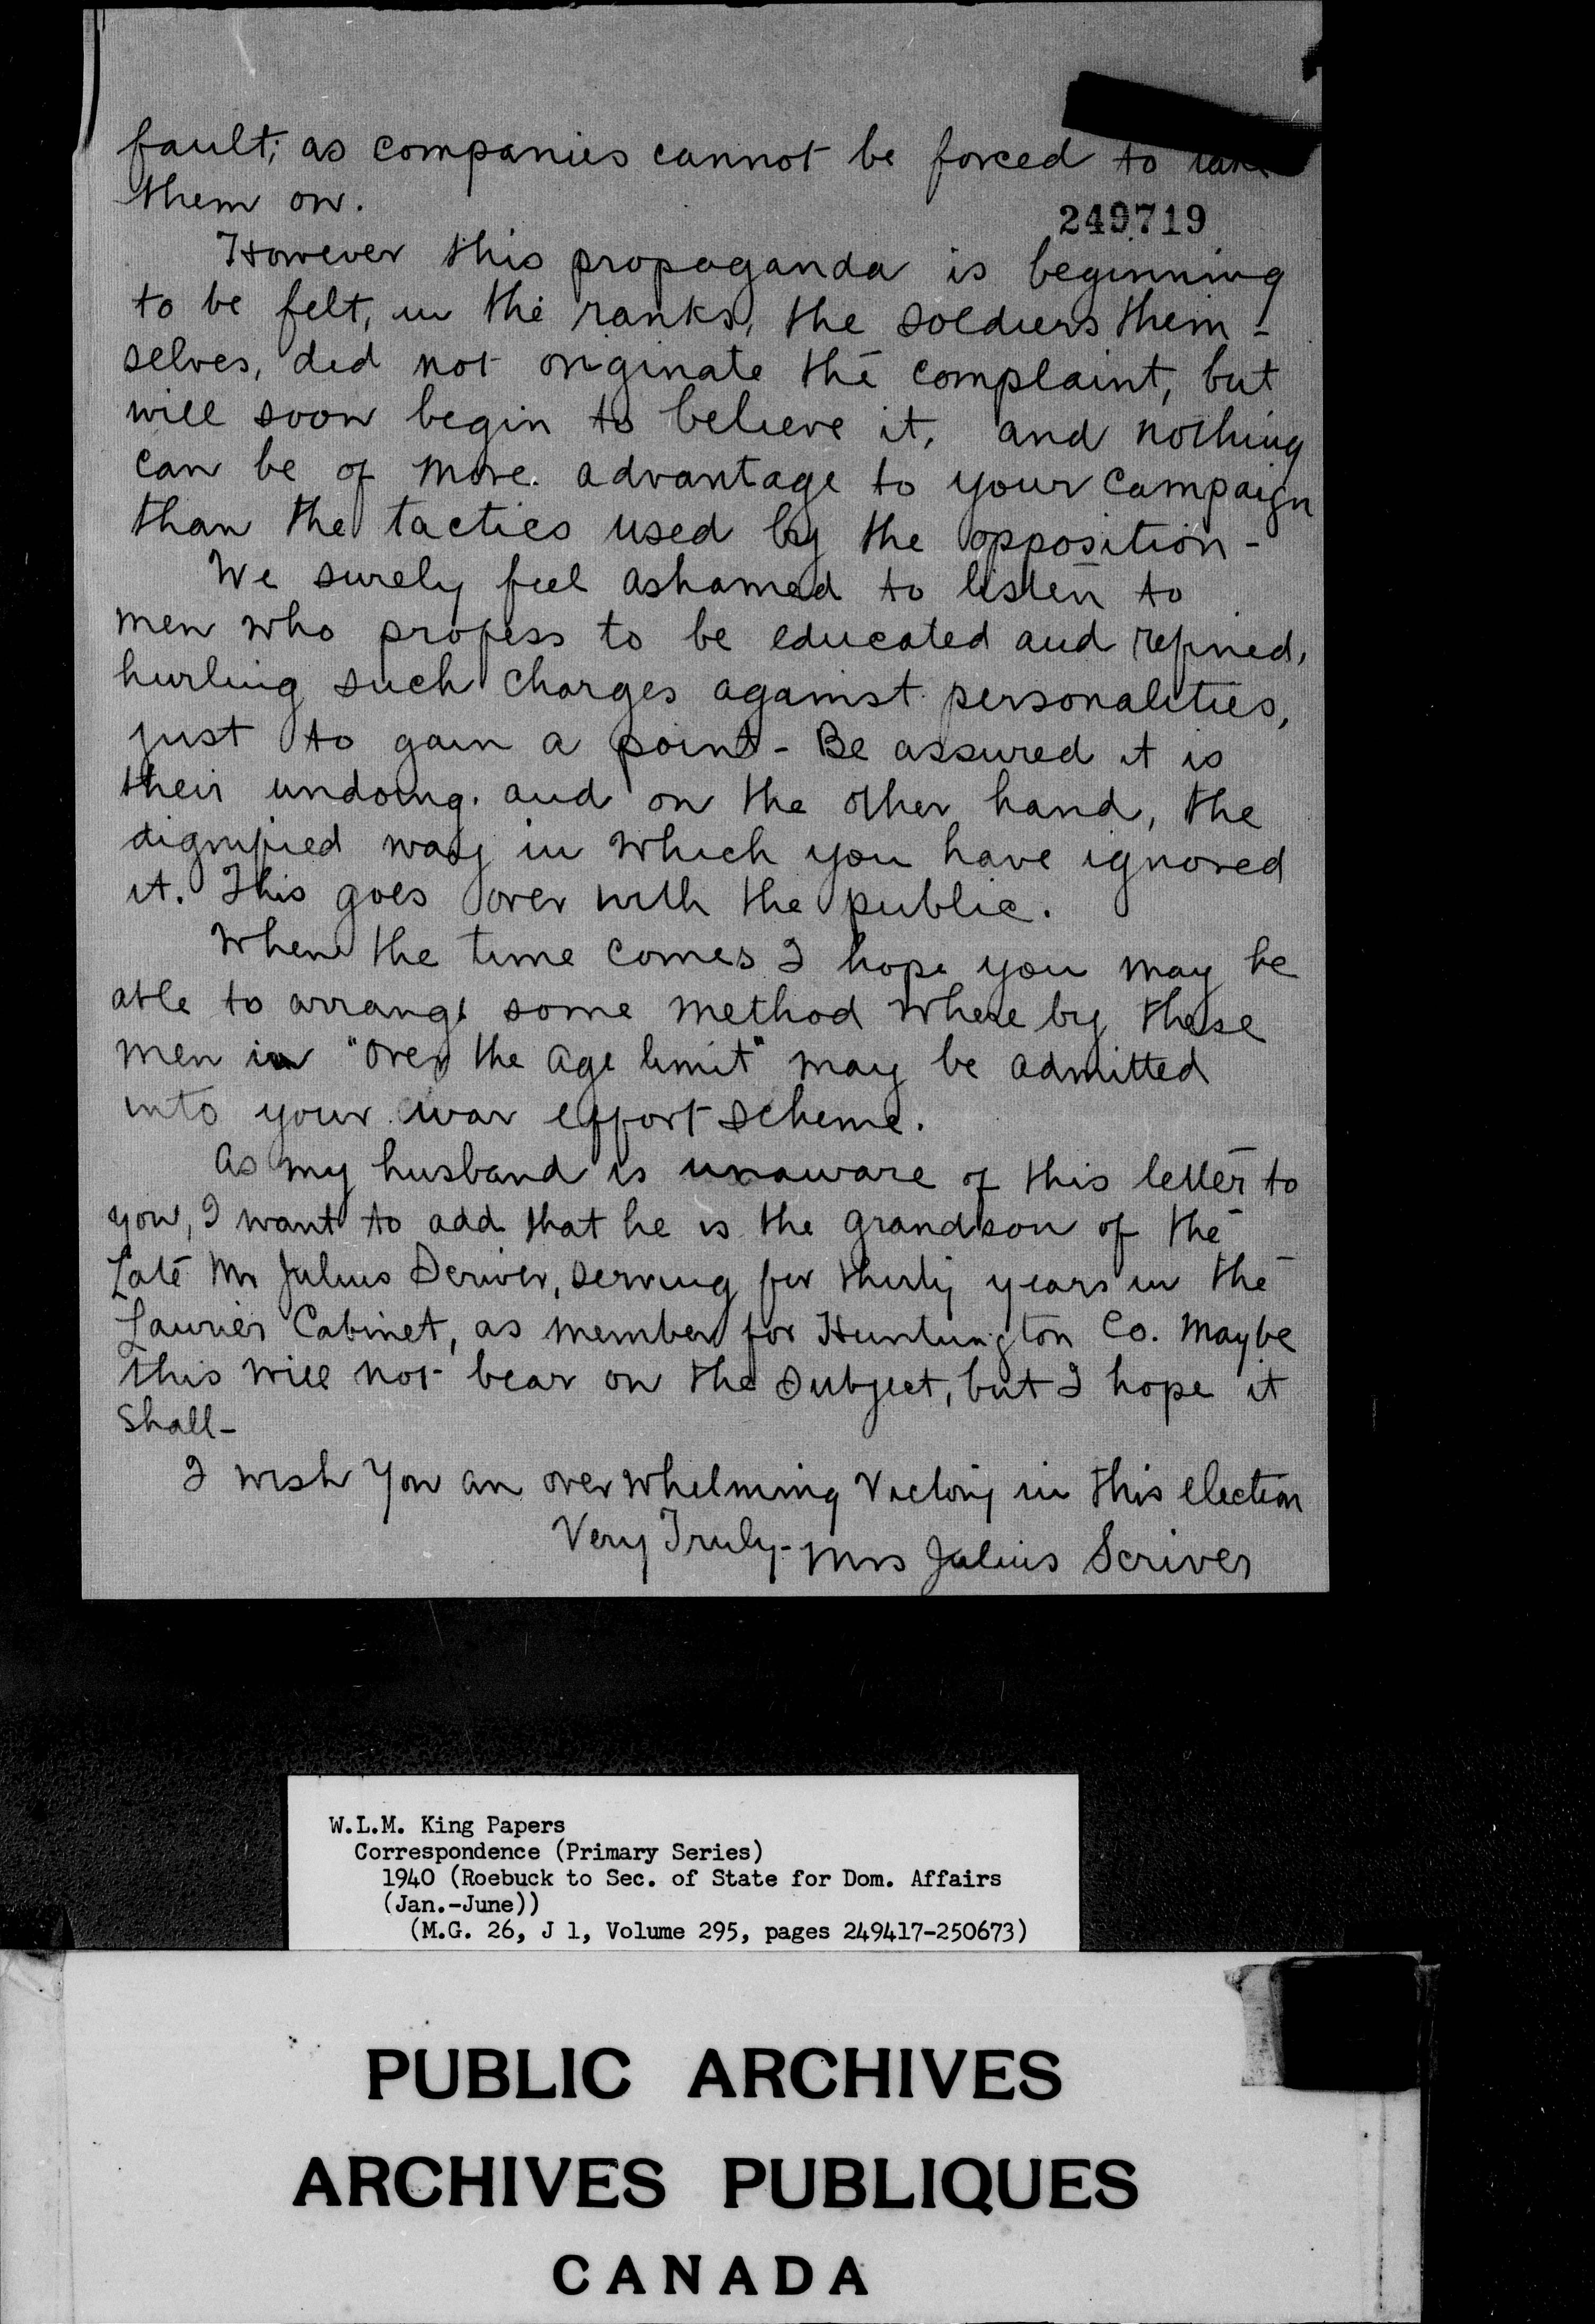 fault; as companies cannot be forced to take
them on.
249719
However this propaganda is beginning
to be felt, in the ranks, the soldiers them -
selves, did not originate the complaint, but
will soon begin to believe it, and nothing
can be of more. advantage to your campaign
than the tactics used by the opposition -
We surely feel ashamed to listen to
men who profess to be educated and refined,
hurling such charges against personalities,
just to gain a point - Be assured it is
their undoing. and on the other hand, the
dignified way in which you have ignored
it. This goes over with the public.
When the time comes I hope you may be
able to arrange some method where by these
men in "over the age limit" may be admitted
into your war effort scheme.
As my husband is unaware of this letter to
you, I want to add that he is the grandson of the
Late Mr Julius Scriver, serving for thirty years in the
Laurier Cabinet, as member for Huntington Co. Maybe
this will not bear on the subject, but I hope it
shall -
I wish you an overwhelming Victory in this election
Very Truly - Mrs Julius Scriver
W.L.M. King Papers
Correspondence (Primary Series)
1940 (Roebuck to Sec. of State for Dom. Affairs
(Jan.-June))
(M.G. 26, J 1, Volume 295, pages 249417-250673)
PUBLIC ARCHIVES
ARCHIVES PUBLIQUES
CANADA